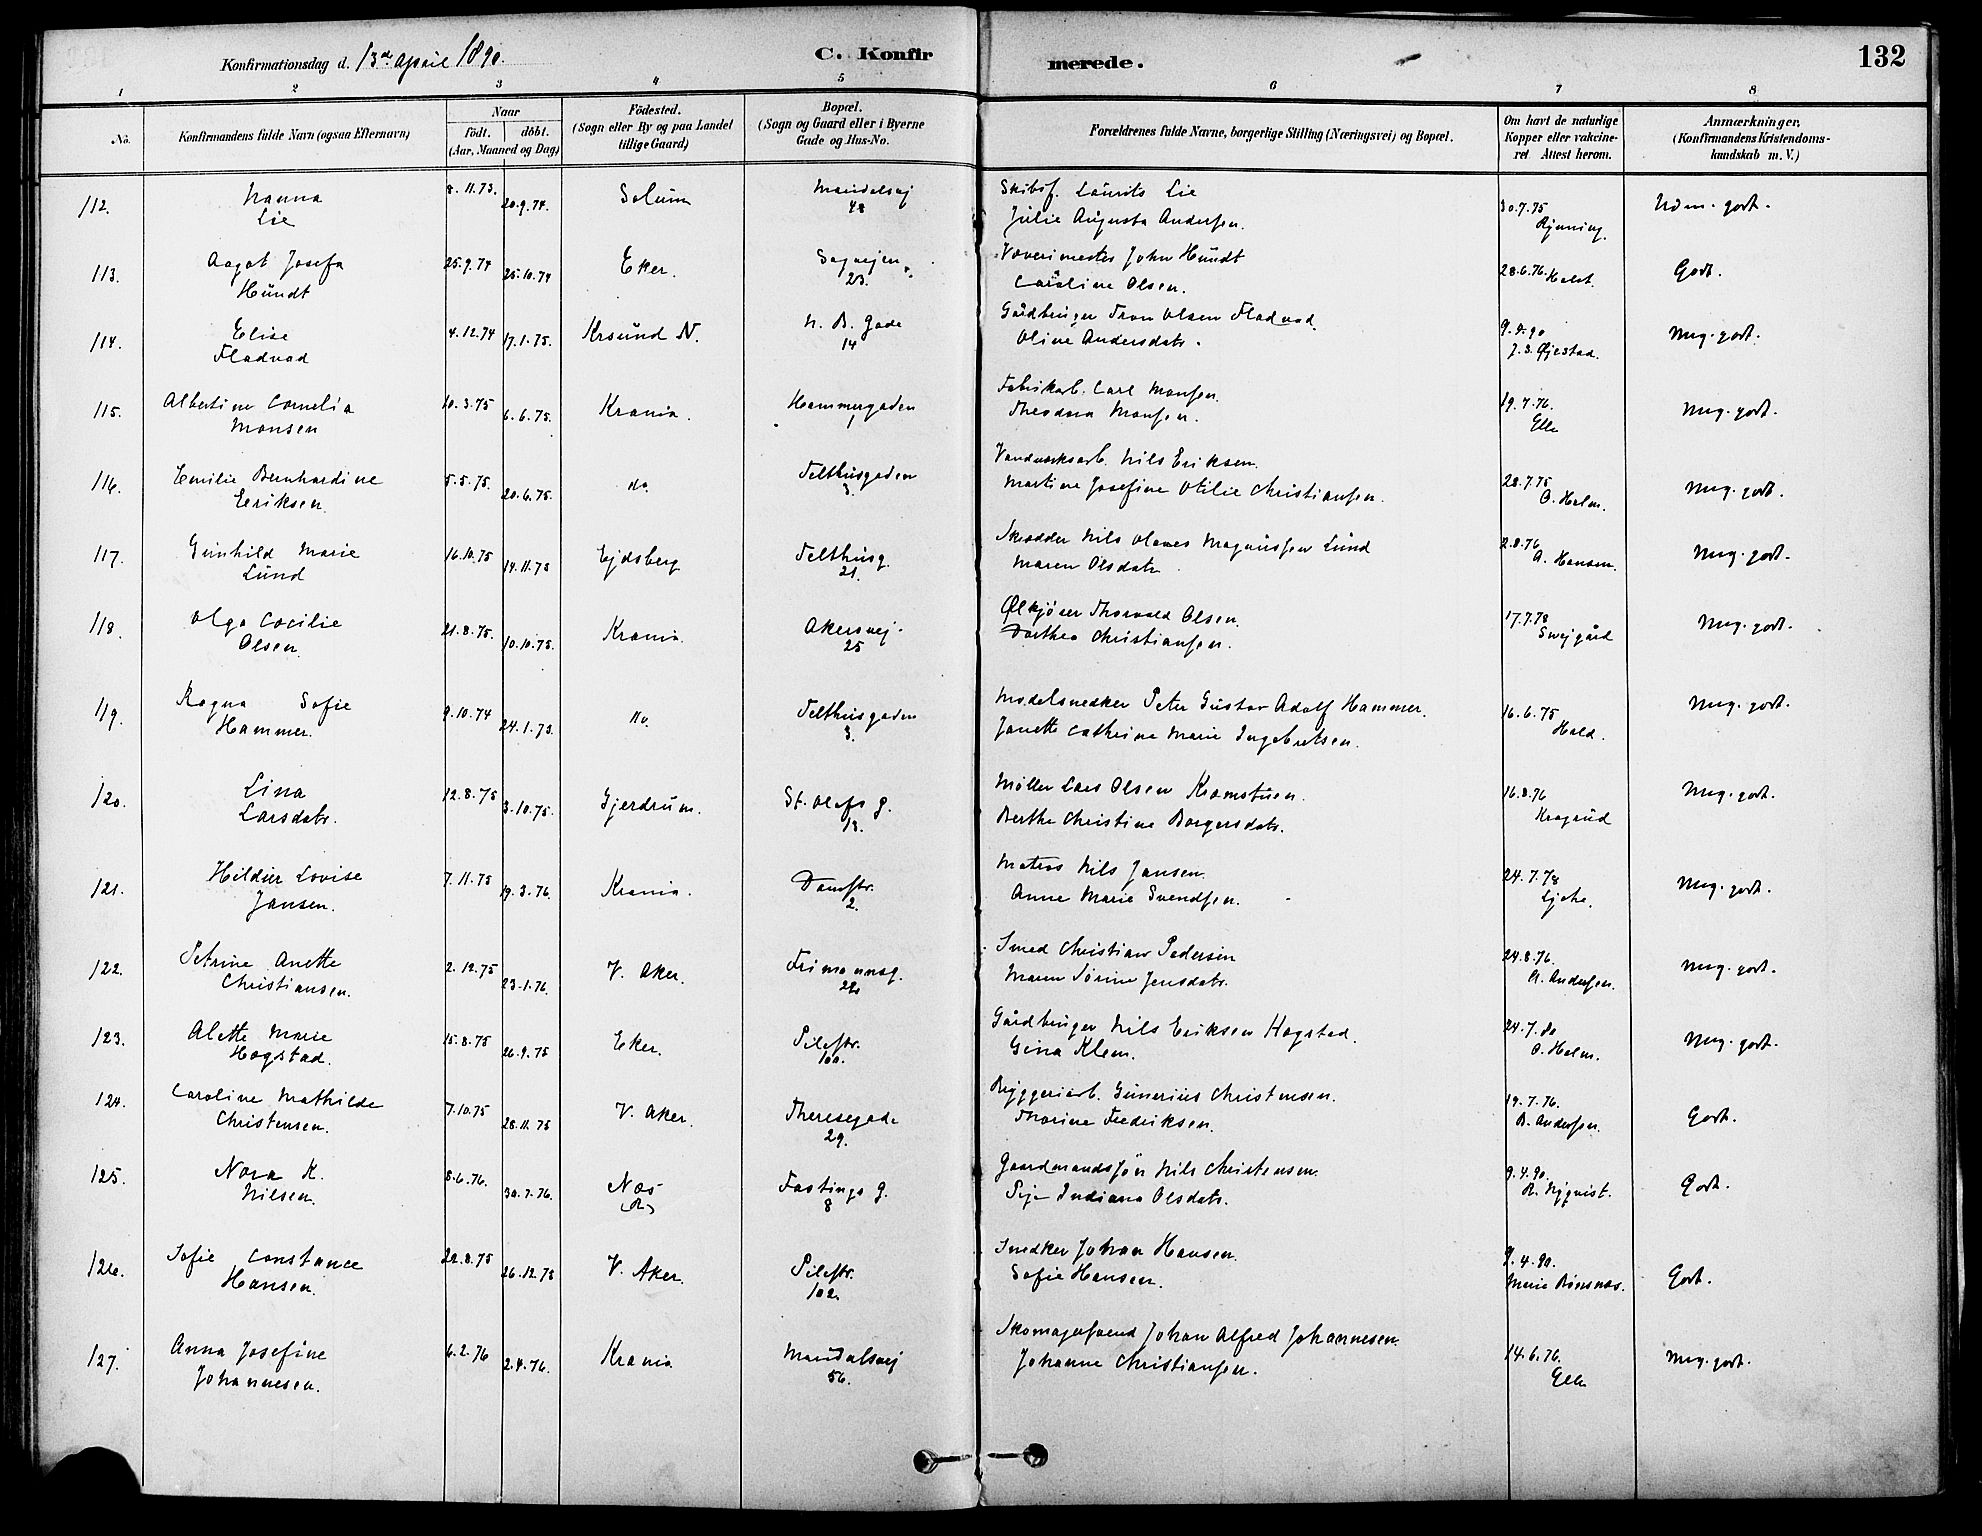 Konfirmationsdag d. 13de April 1890.
C. Konfirmerede.
132
1 2 3 4 5 6 7 8
No.
Konfirmandens fulde Navn (ogsaa Efternavn)
Naar
födt. döbt.
(Aar, Maaned og Dag)
Födested.
(Sogn eller By og paa Landet
tillige Gaard)
Bopæl.
(Sogn og Gaard eller i Byerne
Gade og Hus-No.
Forældrenes fulde Navne, borgerlige Stilling (Næringsvei) og Bopæl.
Om havt de naturlige
Kopper eller vakcine-
ret Attest herom.
Anmærkninger,
(Konfirmandens Kristendoms-
kundskab m. V.)
112. Nanna 8.11.73. 20.9.74. Solum Maridalsvej Skibsf. Laurits Lie 30.7.75 Udm. godt.
Lie 48 Julie Augusta Andersen. Rynning.
113. Aagot Josefa 25.9.74 25.10.74 Eker. Sagvejen Væverimester John Hundt 28.6.76. Holst. Godt.
Hundt 23. Caroline Olsen.
114. Elise 4.12.74 17.1.75. Krsund N. N. B. Gade Gårdbruger Tron Olsen Fladvad 9.4.90 Meg. godt.
Fladvad 14 Oline Andersdatr. J. S. Øjestad.
115. Albertine Cornelia 10.3.75 6.6.75. Krania. Hammergaden Fabrikarb. Carl Monsen. 19.7.76. Meg. godt.
Monsen 1 Theodora Monsen. Elle
116. Emilie Bernhardine 5.5.75. 20.6.75. do. Telthusgaden Vandværksarb. Nils Eriksen. 28.7.75 Meg. godt.
Eriksen. 3. Martine Josefine Otilie Christiansen. O. Holm.
117. Gunhild Marie 16.10.75 14.11.75 Ejdsberg Telthusg. Skrædder Nils Olaves Magnussen Lund 2.8.76 Meg. godt.
Lund 21. Maren Olsdatr A. Hansen.
118. Olga Cecilie 21.8.75. 10.10.75. Krania. Akersvej. Ølkjører Thorvald Olsen. 17.7.78 Meg. godt.
Olsen 25 Dorthea Christiansen. Svejgård
119. Ragna Sofie 9.10.74 24.1.75. do. Telthusgaden Modelsnedker Peter Gustav Adolf Hammer. 16.6.75 Meg. godt.
Hammer. 3. Janette Cathrine Marie Ingebretsen. Hald.
120. Lina 12.8.75 3.10.75. Gjerdrum. St. Olafs g. Møller Lars Olsen Kramstuen. 16.8.76 Meg. godt.
Larsdatr. 13. Berthe Christine Borgersdatr. Kragrud
121. Hildur Lovise 7.11.75 19.3.76. Krania. Damstr. Matros Nils Jansen. 24.7.78 Meg. godt.
Jansen. 2. Anne Marie Svendsen.
122. Petrine Anette 2.12.75 23.1.76. V. Aker. Frimannsg. Smed Christian Pedersen 24.8.76. Meg. godt.
Christiansen. Maren Sørine Jensdatr. A. Andersen.
123. Alette Marie 15.8.75 26.9.75 Eker. Pilestr. Gårdbruger Nils Eriksen Hogstad. 24.7.80 Meg. godt.
Hogstad. 100. Gina Klem. O. Holm.
124. Caroline Mathilde 7.10.75 28.11.75 V. Aker. Theresegade Byggeriarb. Gunerius Christensen. 19.7.76. Godt.
Christensen. 29. Thorine Fredriksen. B. Andersen.
125. Nora K. 8.6.76. 30.7.76. Næs Fastings g. Gaardmandssøn Nils Christensen. 9.4.90. Godt.
Nilsen. (R) 8 Indiana Olsdatr. R. Nyquist.
126. Sofie Constance 22.8.75 26.12.75 V. Aker. Pilestr. Snedker Johan Hansen. 9.4.90. Godt.
Hansen. 102. Sofie Hansen. Marie
127. Anna Josefine 6.2.76 2.4.76. Krania Maridalsvej Skomagersvend Johan Alfred Johannesen. 14.6.76. Meg. godt.
Johannesen. 56. Johanne Christiansen. Elle